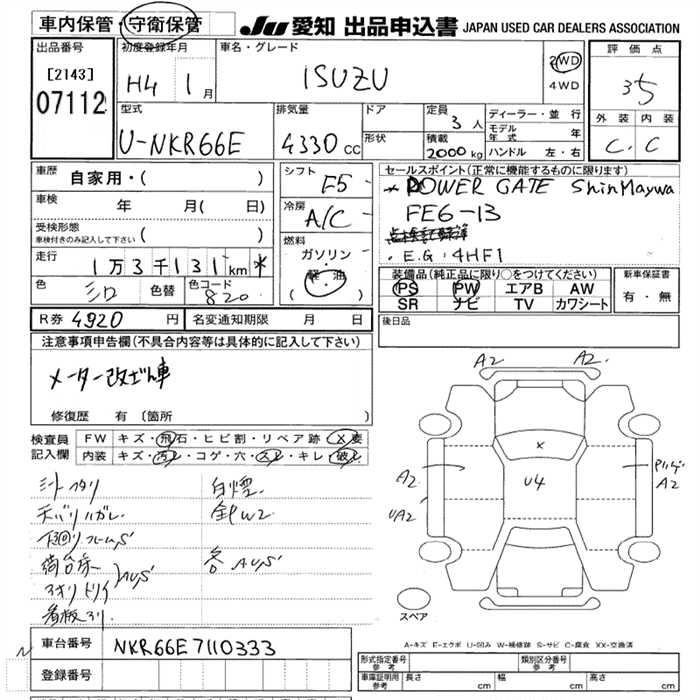 車内保管・守衛保管
JU 愛知 出品申込書 JAPAN USED CAR DEALERS ASSOCIATION
出品番号
[2143]
07112
初度登録年月
H4 1月
車名・グレード
ISUZU
2WD
4WD
評価点
3.5
外装 内装
C. C
型式
U-NKR66E
排気量
4330 cc
ドア
形状
定員
3人
積載
2000kg
ディーラー・並行
モデル年式 年
ハンドル 左・右
車歴
自家用・( )
車検 年 月( 日)
受検形態
車検付きのみ記入して下さい ( )
走行
1万3千131km *
色
シロ
色替
色コード
820
シフト
F5
冷房
A/C
燃料
ガソリン・
軽油
( ・ )
セールスポイント(正常に機能するものに限ります)
* POWER GATE ShinMaywa
FE6-13
・E.G:4HF1
装備品(純正品に限り○をつけてください)
PS PW エアB AW
SR ナビ TV カワシート
新車保証書
有・無
R券 4920 円
名変通知期限 月 日
後日品
注意事項申告欄(不具合内容等は具体的に記入して下さい)
メーター改ざん車
修復歴 有〔箇所 〕
検査員
記入欄
FW キズ・飛石・ヒビ割・リペア跡・X要
内装 キズ・汚レ・コゲ・穴・スレ・キレ・破レ
シートヘタリ
天バリハガレ
下回りフレームS
荷台床
アオリ トリイ AUS
看板アリ
白煙
針W2
各AUS
A2 A2
A2
UA2
X
U4
A2
スペア
A-キズ E-エクボ U-凹み W-補修跡 S-サビ C-腐食 XX-交換済
車台番号
NKR66E7110333
登録番号
形式指定番号
参考
類別区分番号
参考
車庫証明用
参考
長さ cm
幅 cm
高さ cm